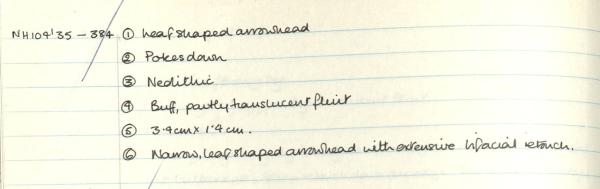 NH104'35 - 384 ① Leaf shaped arrowhead
② Pokesdown
③ Neolithic
④ Buff, partly translucent flint
⑤ 3.9cm x 1.4cm.
⑥ Narrow, leaf shaped arrowhead with extensive bifacial retouch.